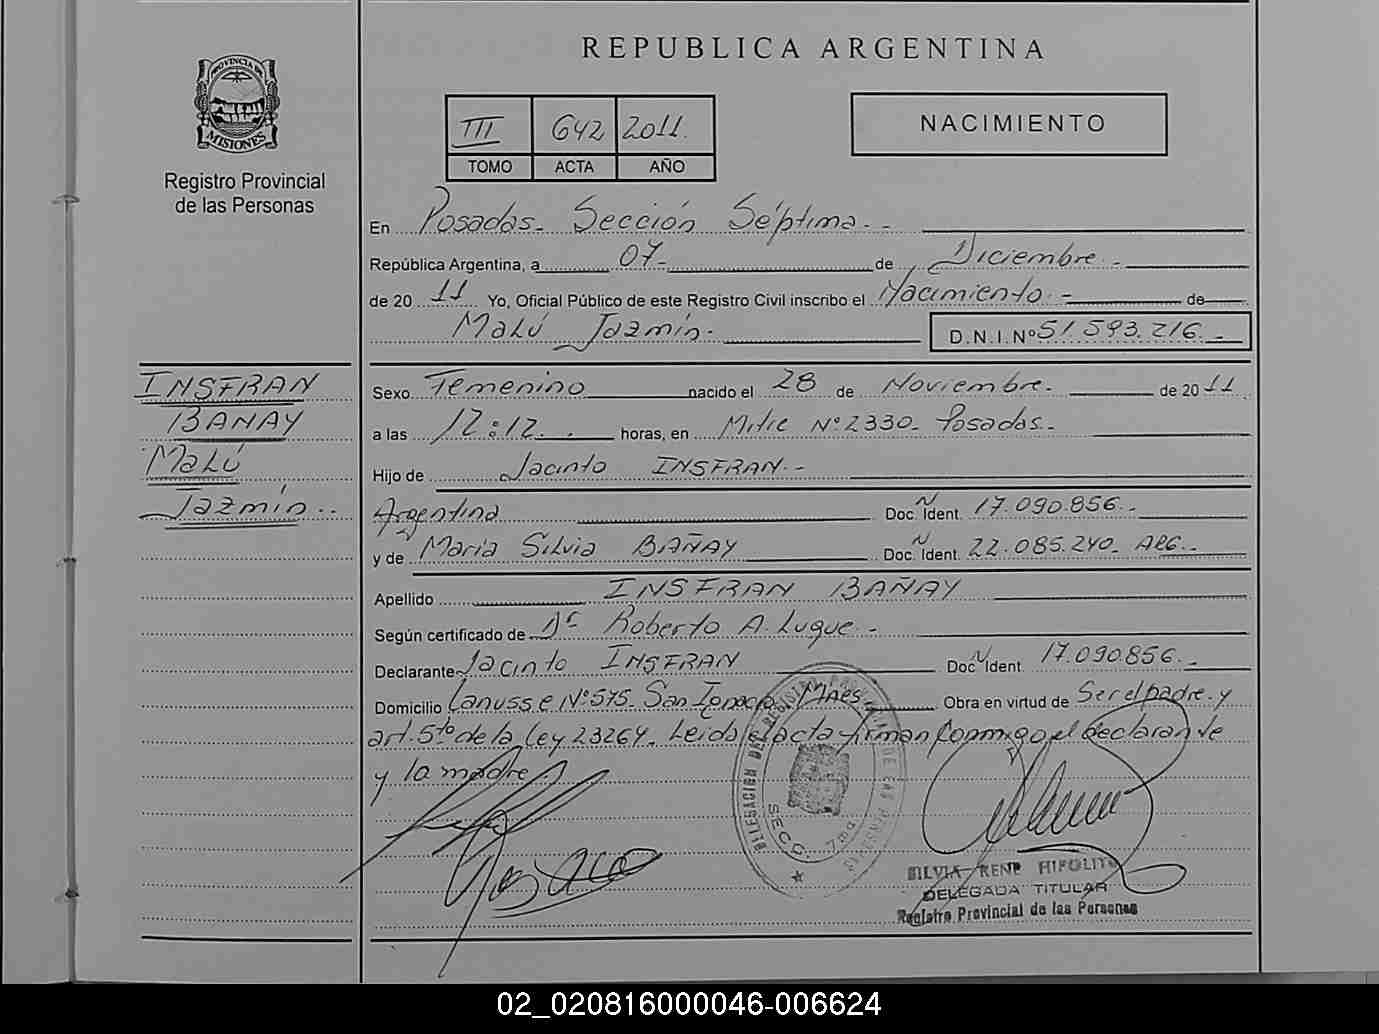 REPUBLICA ARGENTINA
PROVINCIA DE
MISIONES
Registro Provincial
de las Personas
III 642 2011.
TOMO ACTA AÑO
NACIMIENTO
En Posadas. Sección Séptima. -
República Argentina, a 07- de Diciembre -
de 20 11 Yo, Oficial Público de este Registro Civil inscribo el Nacimiento - de
Malú Jazmín. D.N.I.Nº 51.593.216. -
INSFRAN
BAÑAY
Malú
Jazmín..
Sexo Femenino nacido el 28 de Noviembre. de 20 11
a las 12:12. . horas, en Mitre Nº 2330- Posadas-
Hijo de Jacinto INSFRAN. -
Argentina Doc. Ident. N 17.090.856. -
y de María Silvia BAÑAY Doc. Ident. N 22.085.240- ARG.-
Apellido INSFRAN BAÑAY
Según certificado de Dr Roberto A. Luque -
Declarante Jacinto INSFRAN Doc N Ident. 17.090.856. -
Domicilio Lanusse Nº 575- San Ignacio Mnes Obra en virtud de Ser el padre y
art. 5to de la Ley 23264. Leida el acta firman conmigo el declarante
y la madre
DELEGACION DEL REGISTRO PROVINCIAL DE LAS PERSONAS
SECC. 7ma
SILVIA RENE HIPOLITO
DELEGADA TITULAR
Registro Provincial de las Personas
02_020816000046-006624